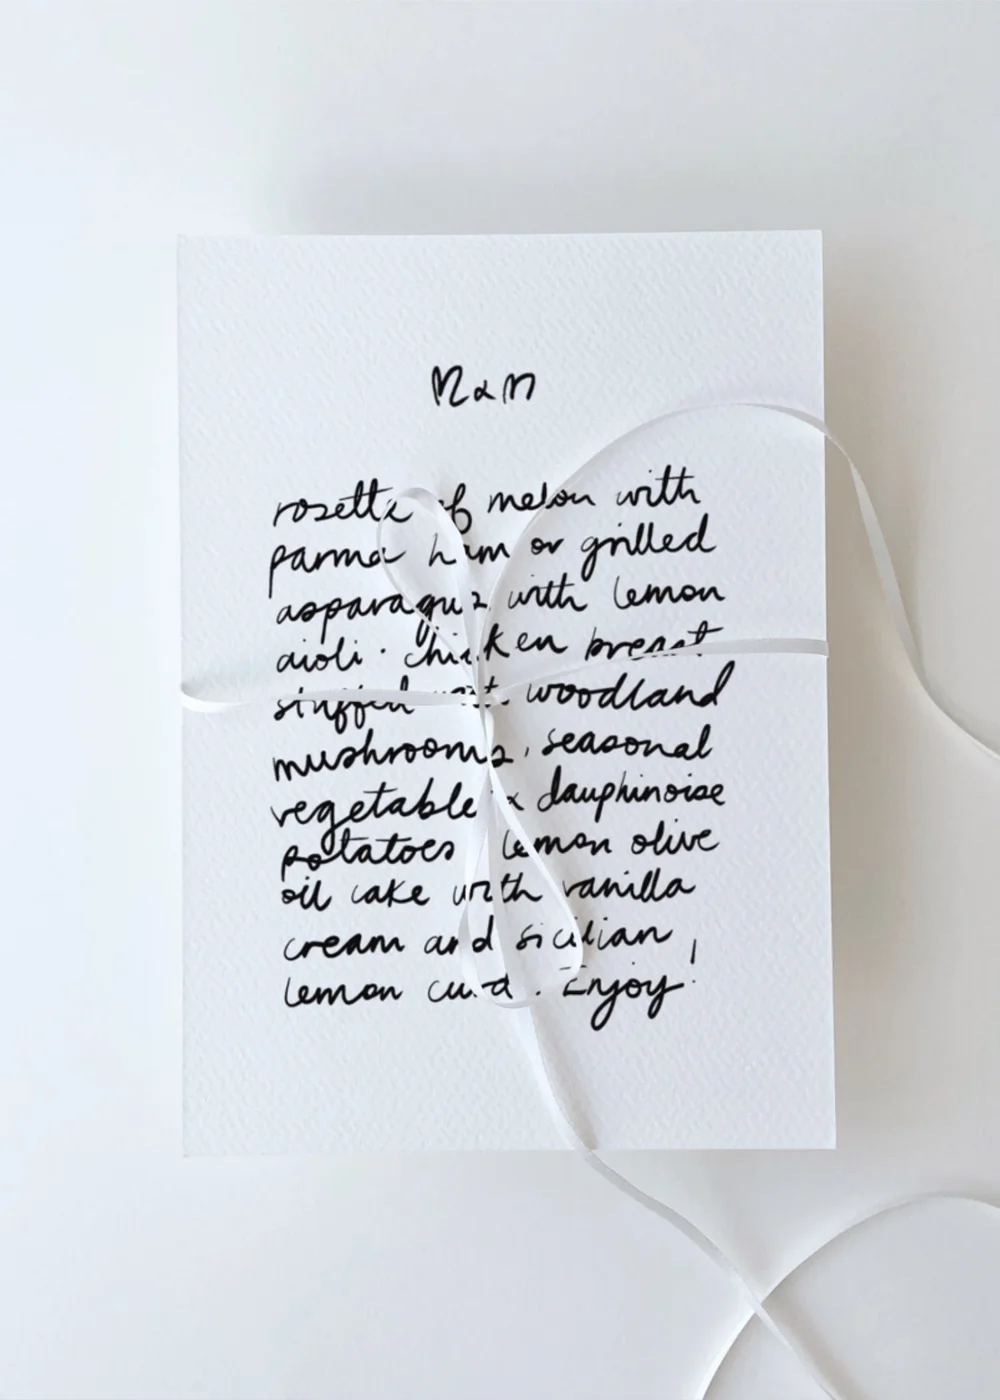 M & M
rosette of melon with
parma ham or grilled
asparagus with lemon
aioli · chicken breast
stuffed with woodland
mushrooms, seasonal
vegetable & dauphinoise
potatoes lemon olive
oil cake with vanilla
cream and sicilian
lemon curd. Enjoy!